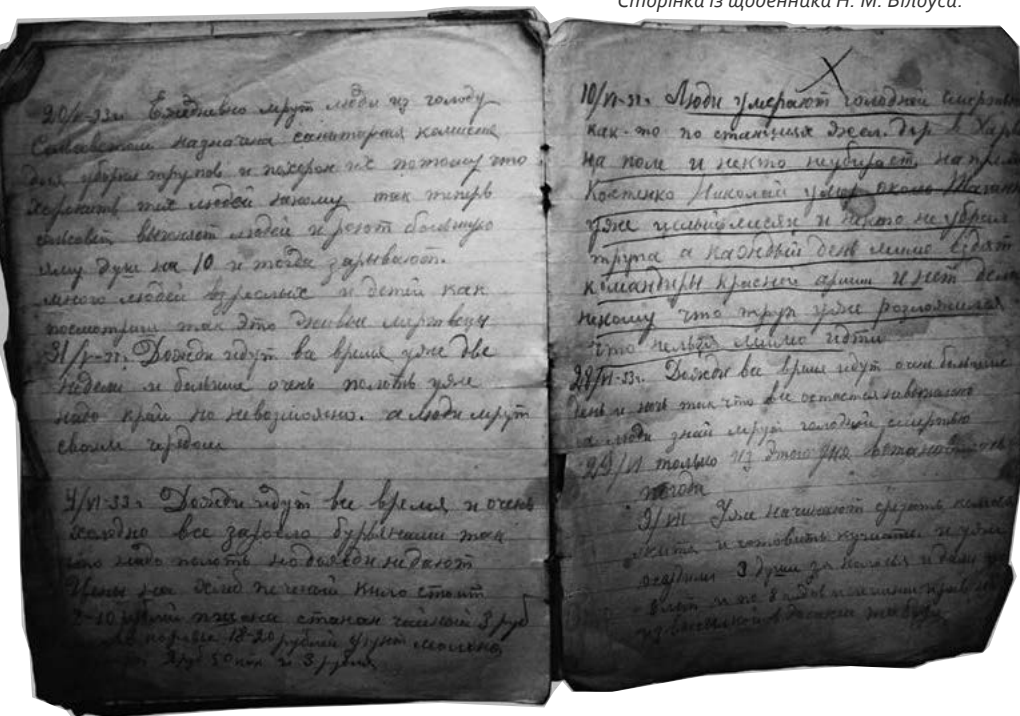 Сторінка із щоденника Н. М. Білоуса.
20/V-33г. Ежедневно мрут люди из голоду
Сельсоветом назначина санитарная комисия
для уборки трупов и похорон их потому что
хоронить тих людей некому так тепирь
сельсовет выгоняет людей и роют большую
яму душ на 10 и тогда зарывают.
много людей взрослых и детей как
посмотриш так это живые мертвецы
31/V-33г. Дожди идут все время уже две
недели и большие очень полоть уже
надо край но невозможно. а люди мрут
своим чередом
4/VI-33г. Дожди идут все время и очень
холодно все заросло бурьянами так
что надо полоть но дожди недают
Цены на хлеб печеный кило стоит
рублей пшона стакан чайный 3 руб
18-20 рублей фунт
2 руб 50 коп и 3 рубля
10/VI-33г. Люди умерают голодной смертью
как-то по станциях жел. дор. в
на поле и некто неубирает,
Костенко Николай умер около
уже целый месяц и некто не убрал
трупа а каждый день мимо едят
командиры красной армии и нет дела
некому что труп уже розложился
что нельзя мимо идти
28/VI-33г. Дожди все время идут очень большие
день и ночь так что все остается
а люди знай мрут голодной смертью
29/VI только из этого дня
погода
9/VII Уже начинают срезать
жита и готовить кушать и уже
3 души за колосья и дали
8 лет и по 8